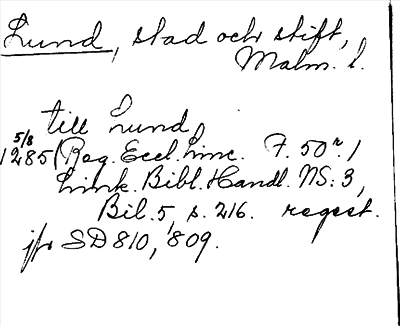 Lund, stad och stift,
Malm. l.
till Lund,
5/8
1285 (Reg. Eccl. Linc. F. 50r. )
Link. Bibl. Handl. NS: 3,
Bil. 5, s. 216. regest.
jfr SD 810, 809.